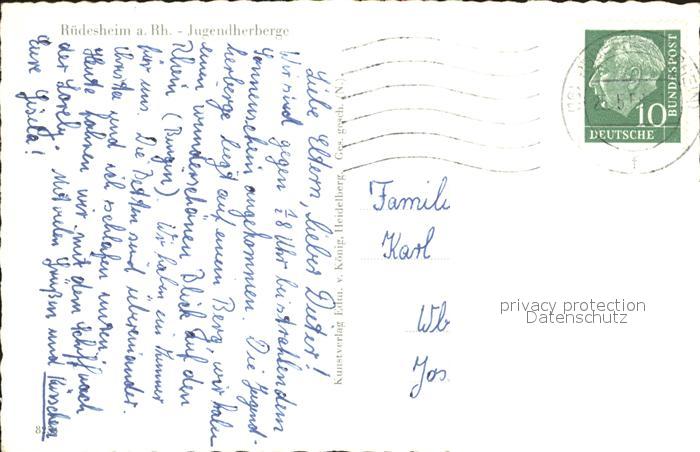 Rüdesheim a. Rh. - Jugendherberge
Liebe Eltern, lieber Dieter!
Wir sind gegen 18 Uhr bei strahlendem
Sonnenschein angekommen. Die Jugend-
herberge liegt auf einem Berg, wir haben
einen wunderschönen Blick auf den
Rhein (Bingen). Wir haben ein Zimmer
für uns. Die Betten sind übereinander.
Christa und ich schlafen unten.
Heute fahren wir mit dem Schiff nach
der Lorely. Mit vielen Grüßen und Küsschen
Eure Gisela!
Kunstverlag Edm. v. König, Heidelberg. Ges. gesch. (N.)
DEUTSCHE
BUNDESPOST
10
Famili
Karl
Wb
Jos
privacy protection
Datenschutz